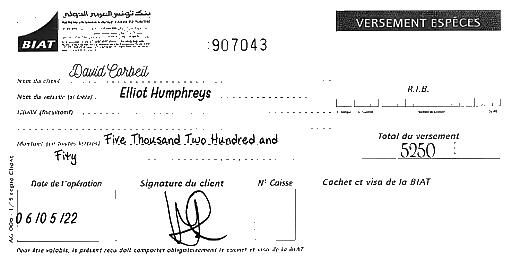 بنك تونس العربي الدولي
BIAT
:907043
VERSEMENT ESPÈCES
David Corbeil
Nom du client
Nom du verseur (si tiers) . Elliot Humphreys
R.I.B.
Libellé (facultatif)
Montant (en toutes lettres) Five Thousand Two Hundred and
Fity
Total du versement
5250
Date de l'opération
Signature du client
N° Caisse
Cachet et visa de la BIAT
06/05/22
Pour être valable, le présent reçu doit comporter obligatoirement le cachet et visa de la BIAT